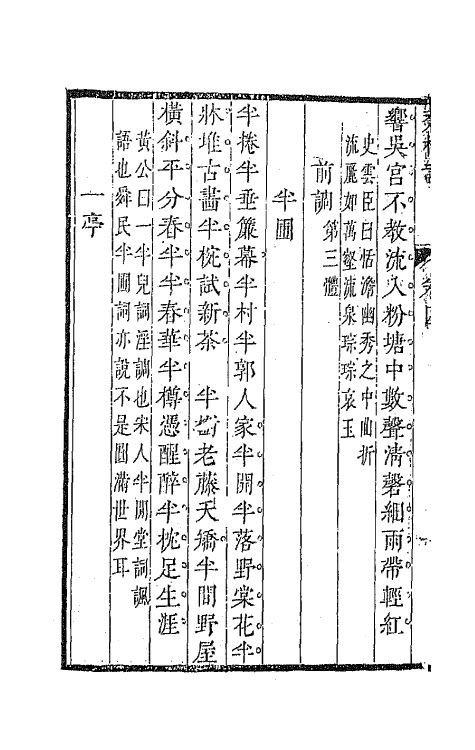 響吳宮不敎流入粉塘中數聲淸磬細雨帶輕紅
史雲臣曰恬澹幽秀之中曲折
流麗如萬壑流泉琮琮哀玉
前調第三體
半圃
半捲半垂簾幕半村半郭人家半開半落野棠花半
牀堆古畵半椀試新茶　半𡵺老藤天矯半間野屋
橫斜平分春半半春華半樽憑醒醉半枕足生涯
黃公曰一半兒詞淫調也宋人半閒堂詞諷
語也舜民半圃詞亦說不是圓滿世界耳
一亭